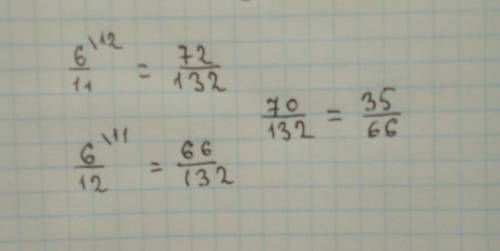 6\12/11 = 72/132
70/132 = 35/66
6\11/12 = 66/132